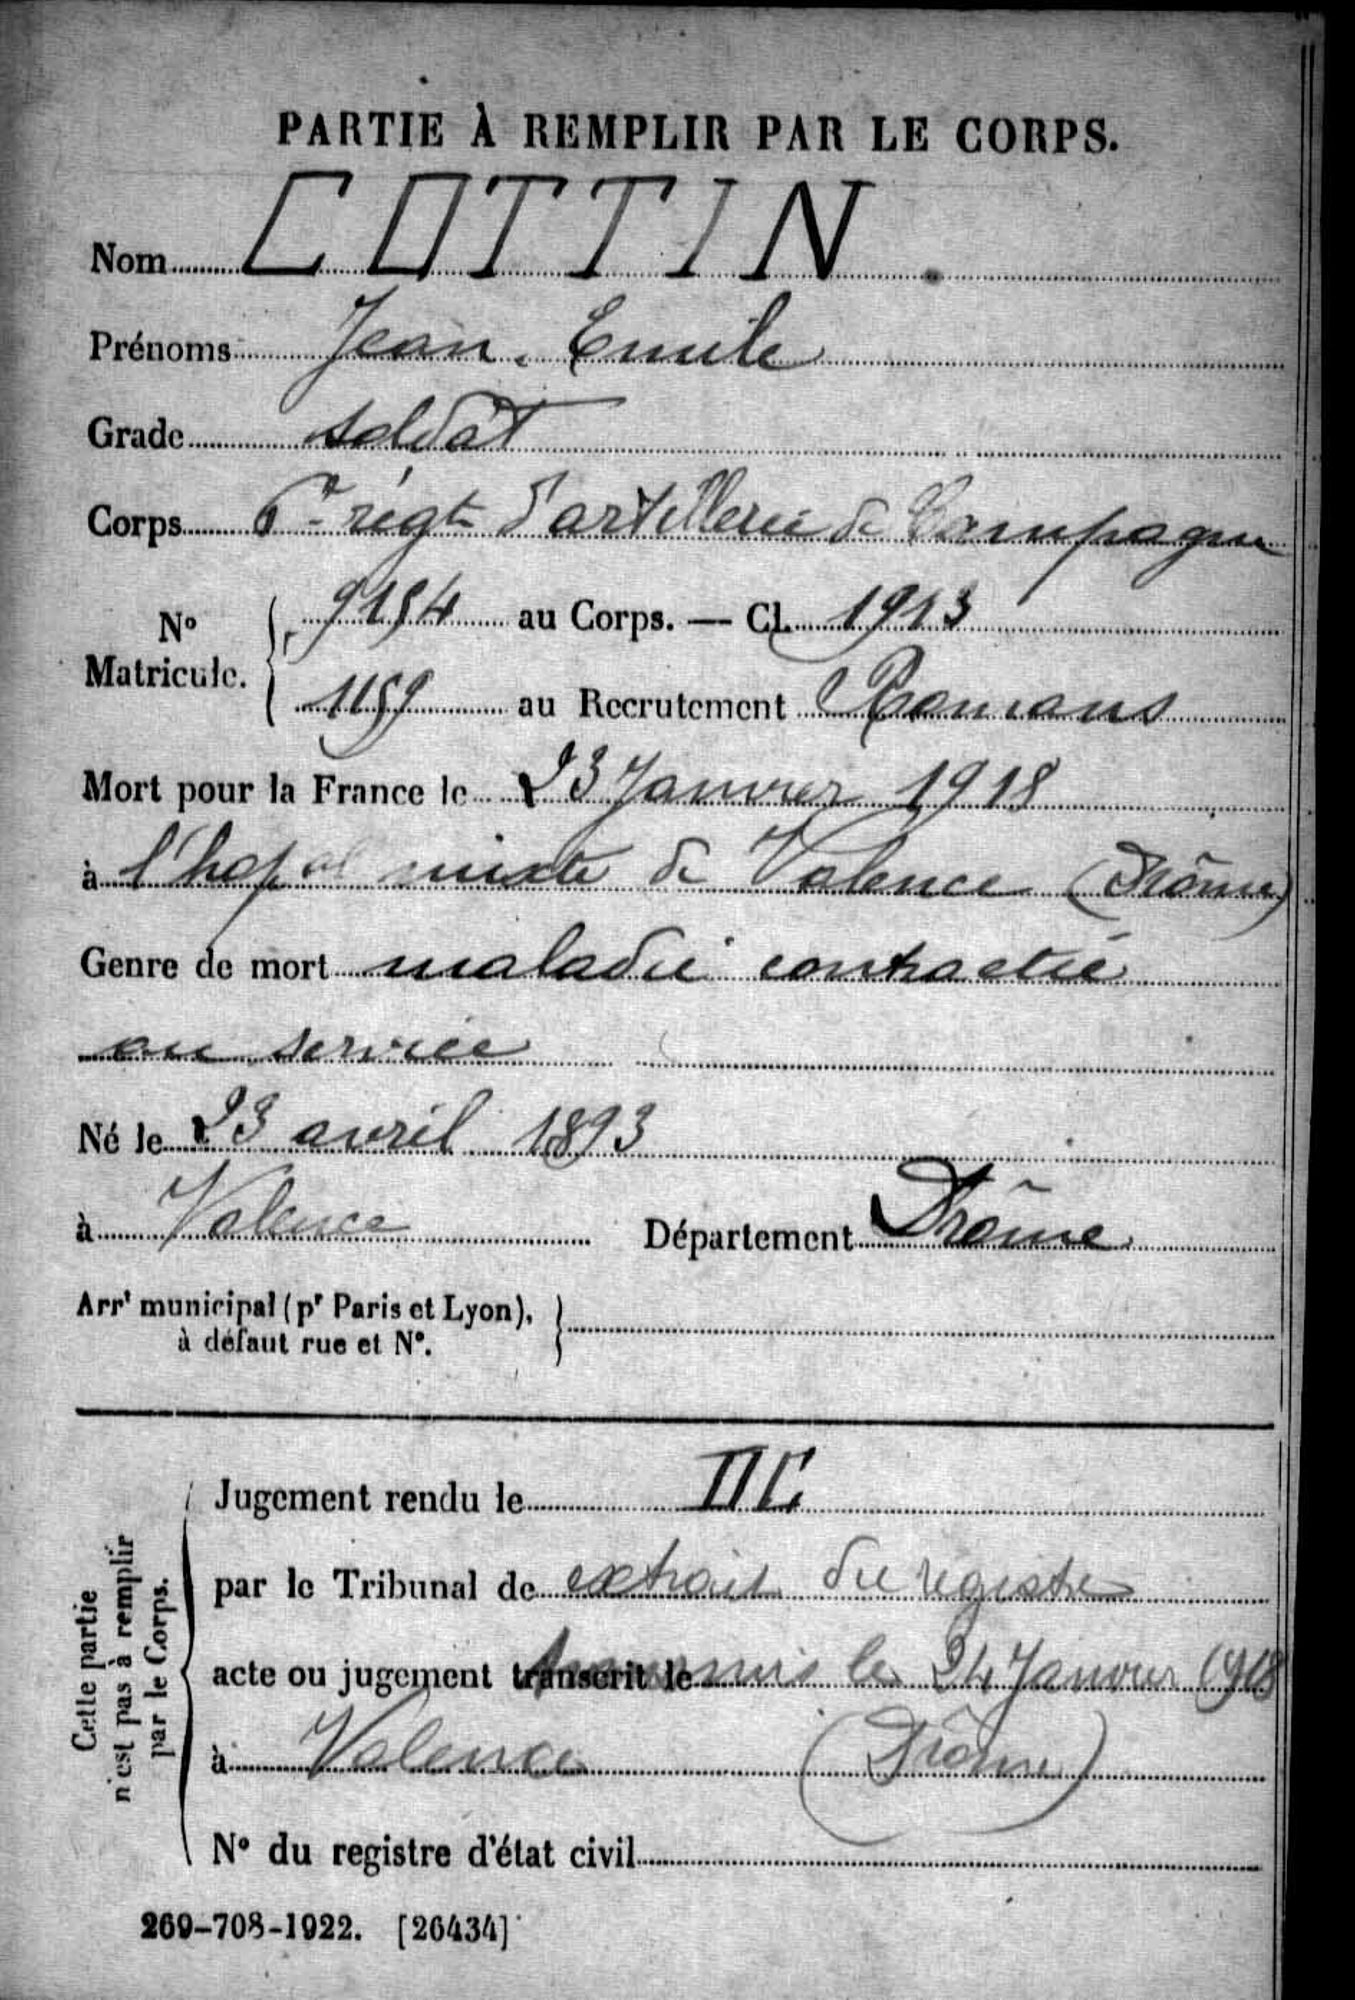 PARTIE À REMPLIR PAR LE CORPS.
Nom COTTIN
Prénoms Jean. Emile
Grade soldat
Corps 6e régt d'artillerie de Campagne
N° Matricule. { 9154 au Corps. — Cl. 1913
1159 au Recrutement Romans
Mort pour la France le 23 Janvier 1918
à l'hopal mixte de Valence (Drôme)
Genre de mort maladie contractée
au service
Né le 23 avril 1893
à Valence Département Drôme
Arrt municipal (pr Paris et Lyon), à défaut rue et N°.
Cette partie n'est pas à remplir par le Corps.
Jugement rendu le
par le Tribunal de extrait du registre
acte ou jugement transcrit le le 24 Janvier 1918
à Valence (Drôme)
N° du registre d'état civil
269-708-1922. [26434]